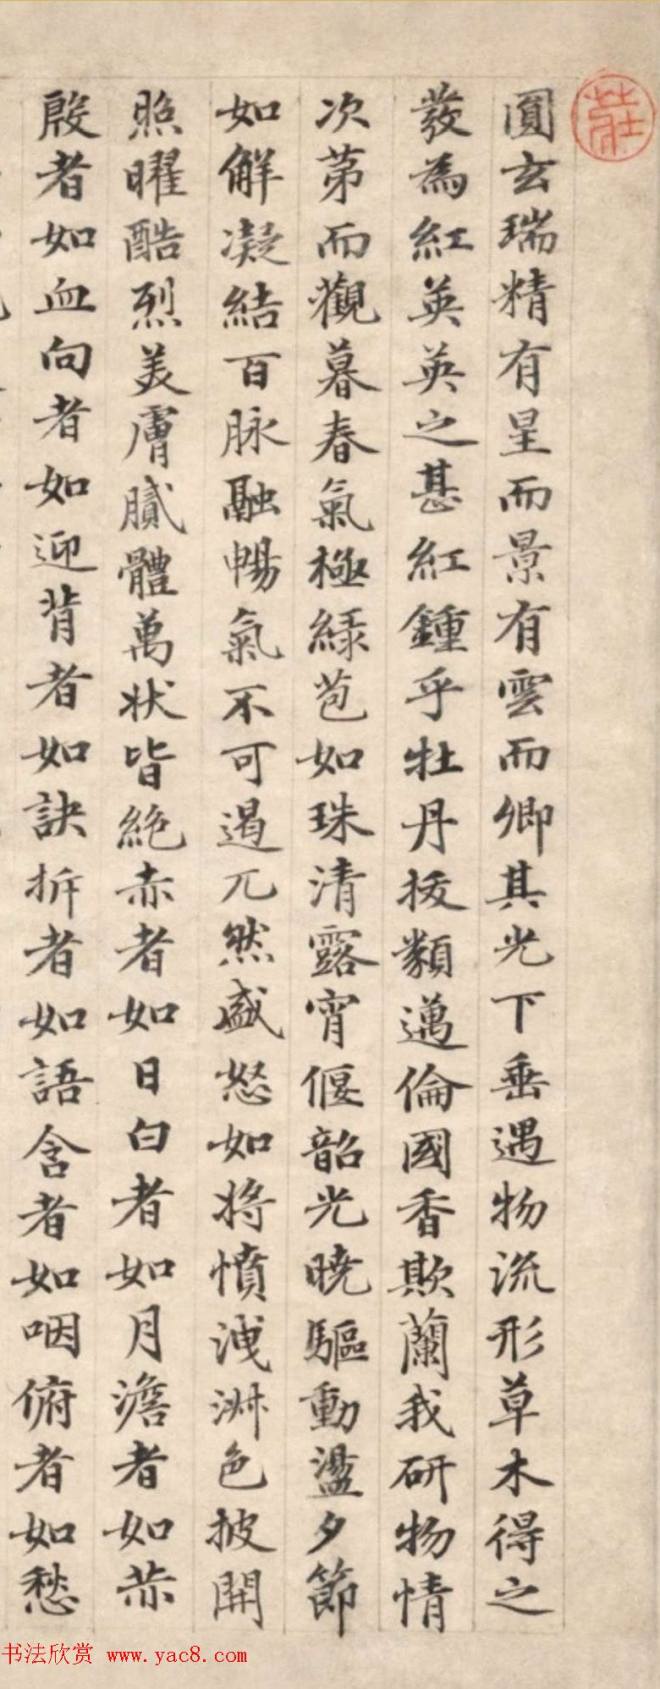 莊
圓玄瑞精有星而景有雲而卿其光下垂遇物流形草木得之
發為紅英英之甚紅鍾乎牡丹拔類邁倫國香欺蘭我研物情
次苐而觀暮春氣極綠苞如珠清露宵偃韶光曉驅動盪夕節
如解凝結百脉融暢氣不可遏兀然盛怒如將憤洩淋色披開
照曜酷烈美膚膩體萬状皆絶赤者如日白者如月澹者如赤
殷者如血向者如迎背者如訣拆者如語含者如咽俯者如愁
书法欣赏 www.yac8.com